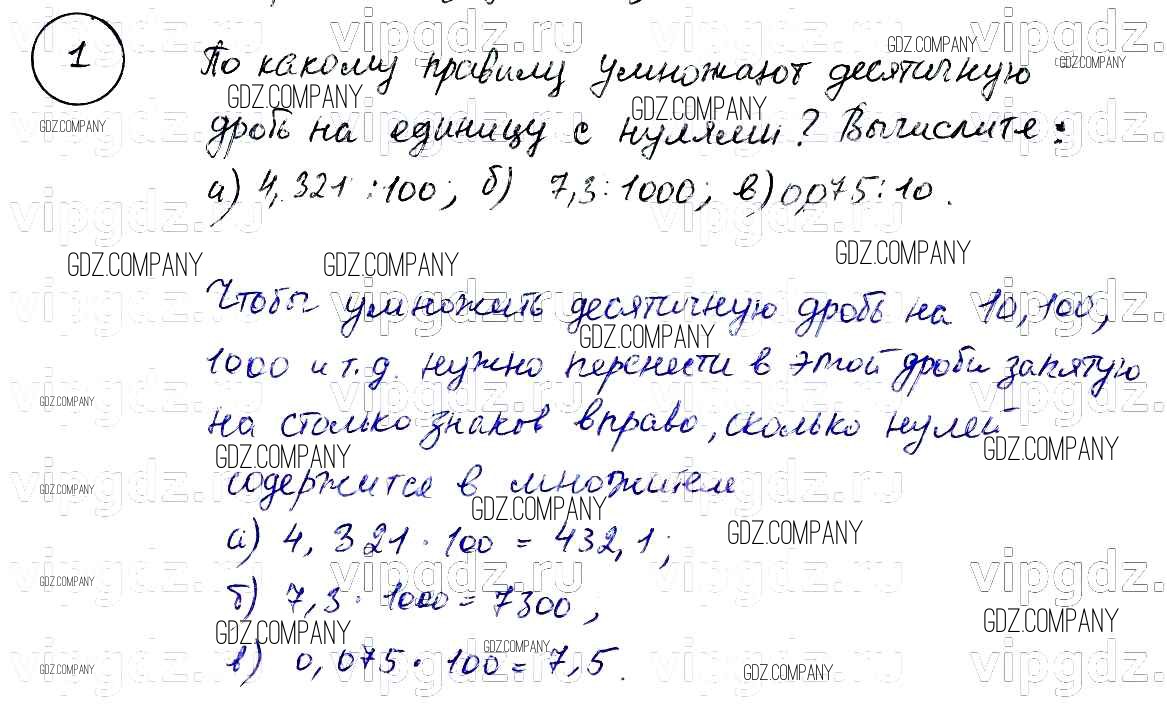 1
По какому правилу умножают десятичную
дробь на единицу с нулями? Вычислите:
а) 4,321 : 100; б) 7,3 : 1000; в) 0,075 : 10.
Чтобы умножить десятичную дробь на 10, 100,
1000 и т.д. нужно перенести в этой дроби запятую
на столько знаков вправо, сколько нулей
содержится в множителе
а) 4,321 · 100 = 432,1;
б) 7,3 · 1000 = 7300;
в) 0,075 · 100 = 7,5.
vipgdz.ru
GDZ.COMPANY